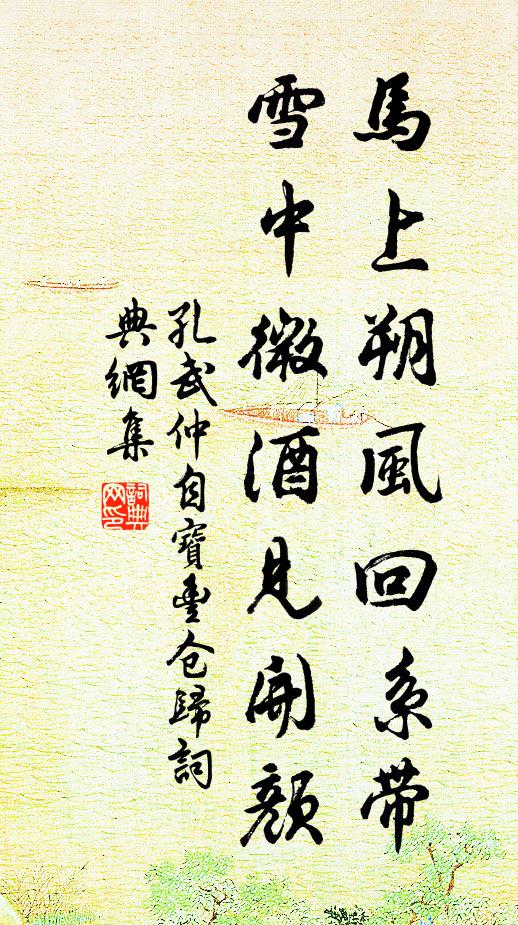 馬上朔風回系帶
雪中微酒見開顏
孔武仲自寶豐仓歸詞
典網集
詞典网印